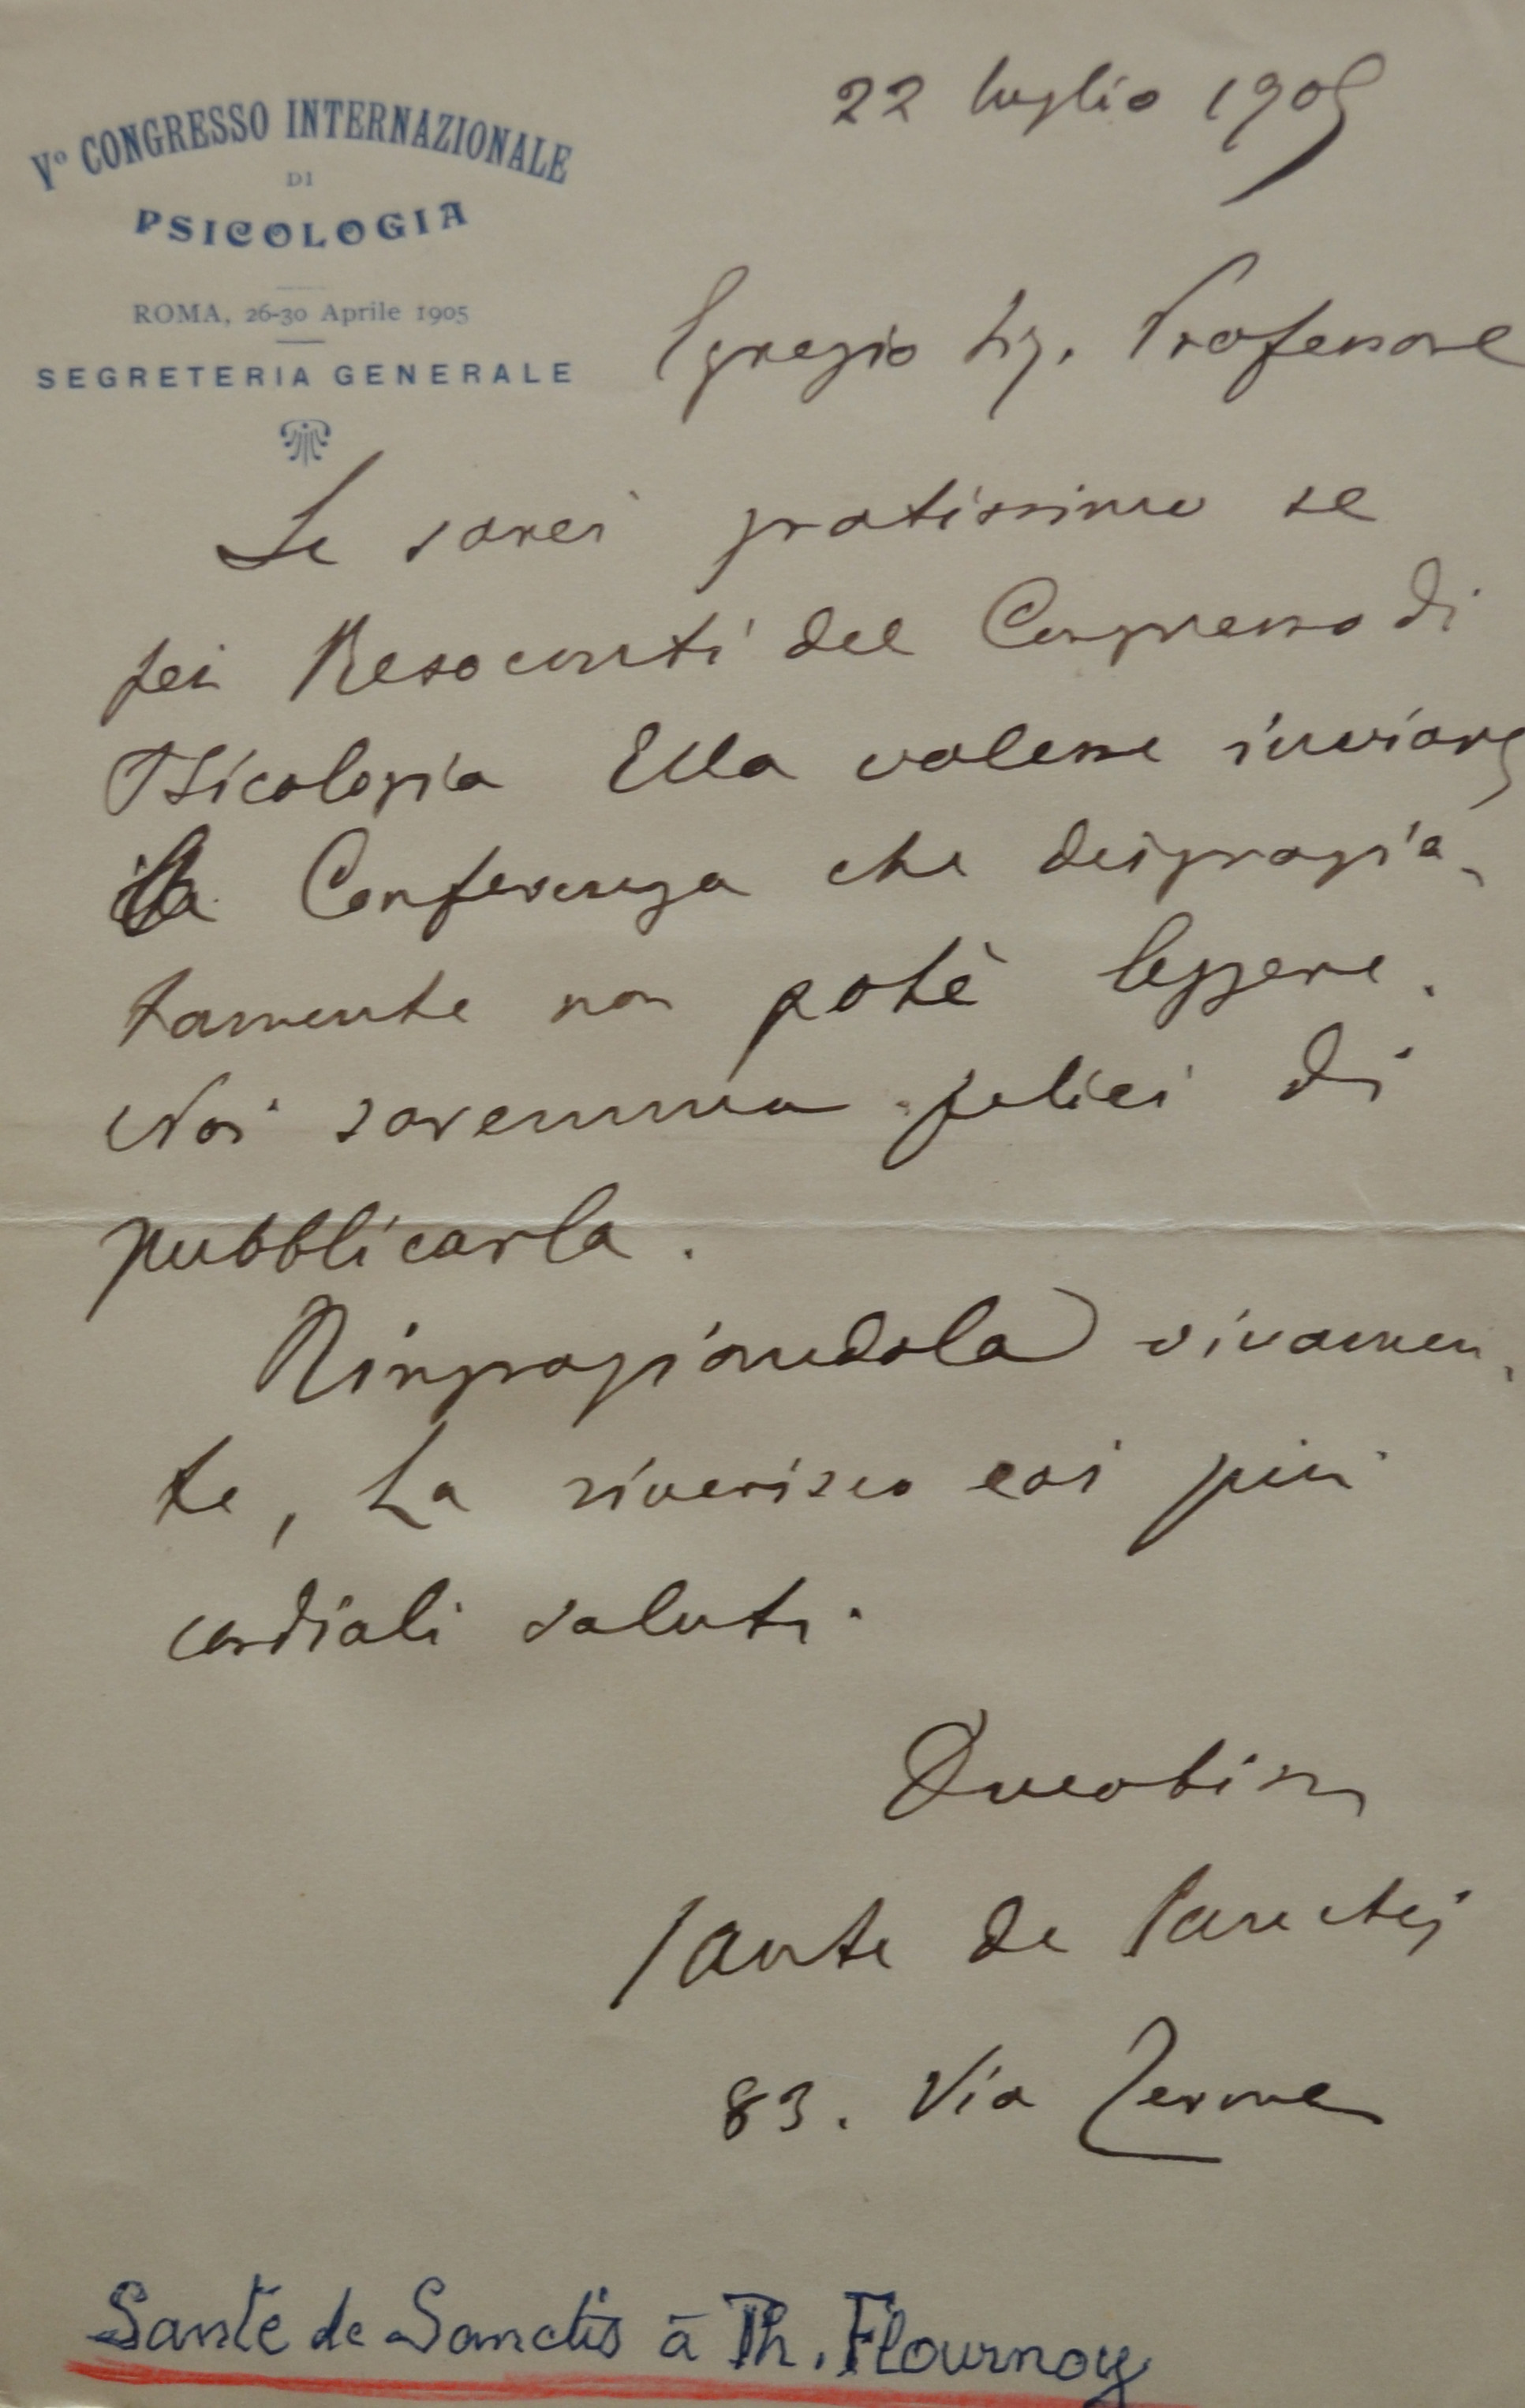 Vº CONGRESSO INTERNAZIONALE
DI
PSICOLOGIA
ROMA, 26-30 Aprile 1905
SEGRETERIA GENERALE
22 luglio 1905
Egregio Sig. Professore
Le sarei gratissimo se
pei Resoconti del Congresso di
Psicologia Ella volesse inviare
la Conferenza che disgrazia-
tamente non potè leggere.
Noi saremmo felici di
pubblicarla.
Ringraziandola vivamen-
te, La riverisco coi più
cordiali saluti.
Devotissm
Sante de Sanctis
83. Via Terme
Sante de Sanctis à Th. Flournoy